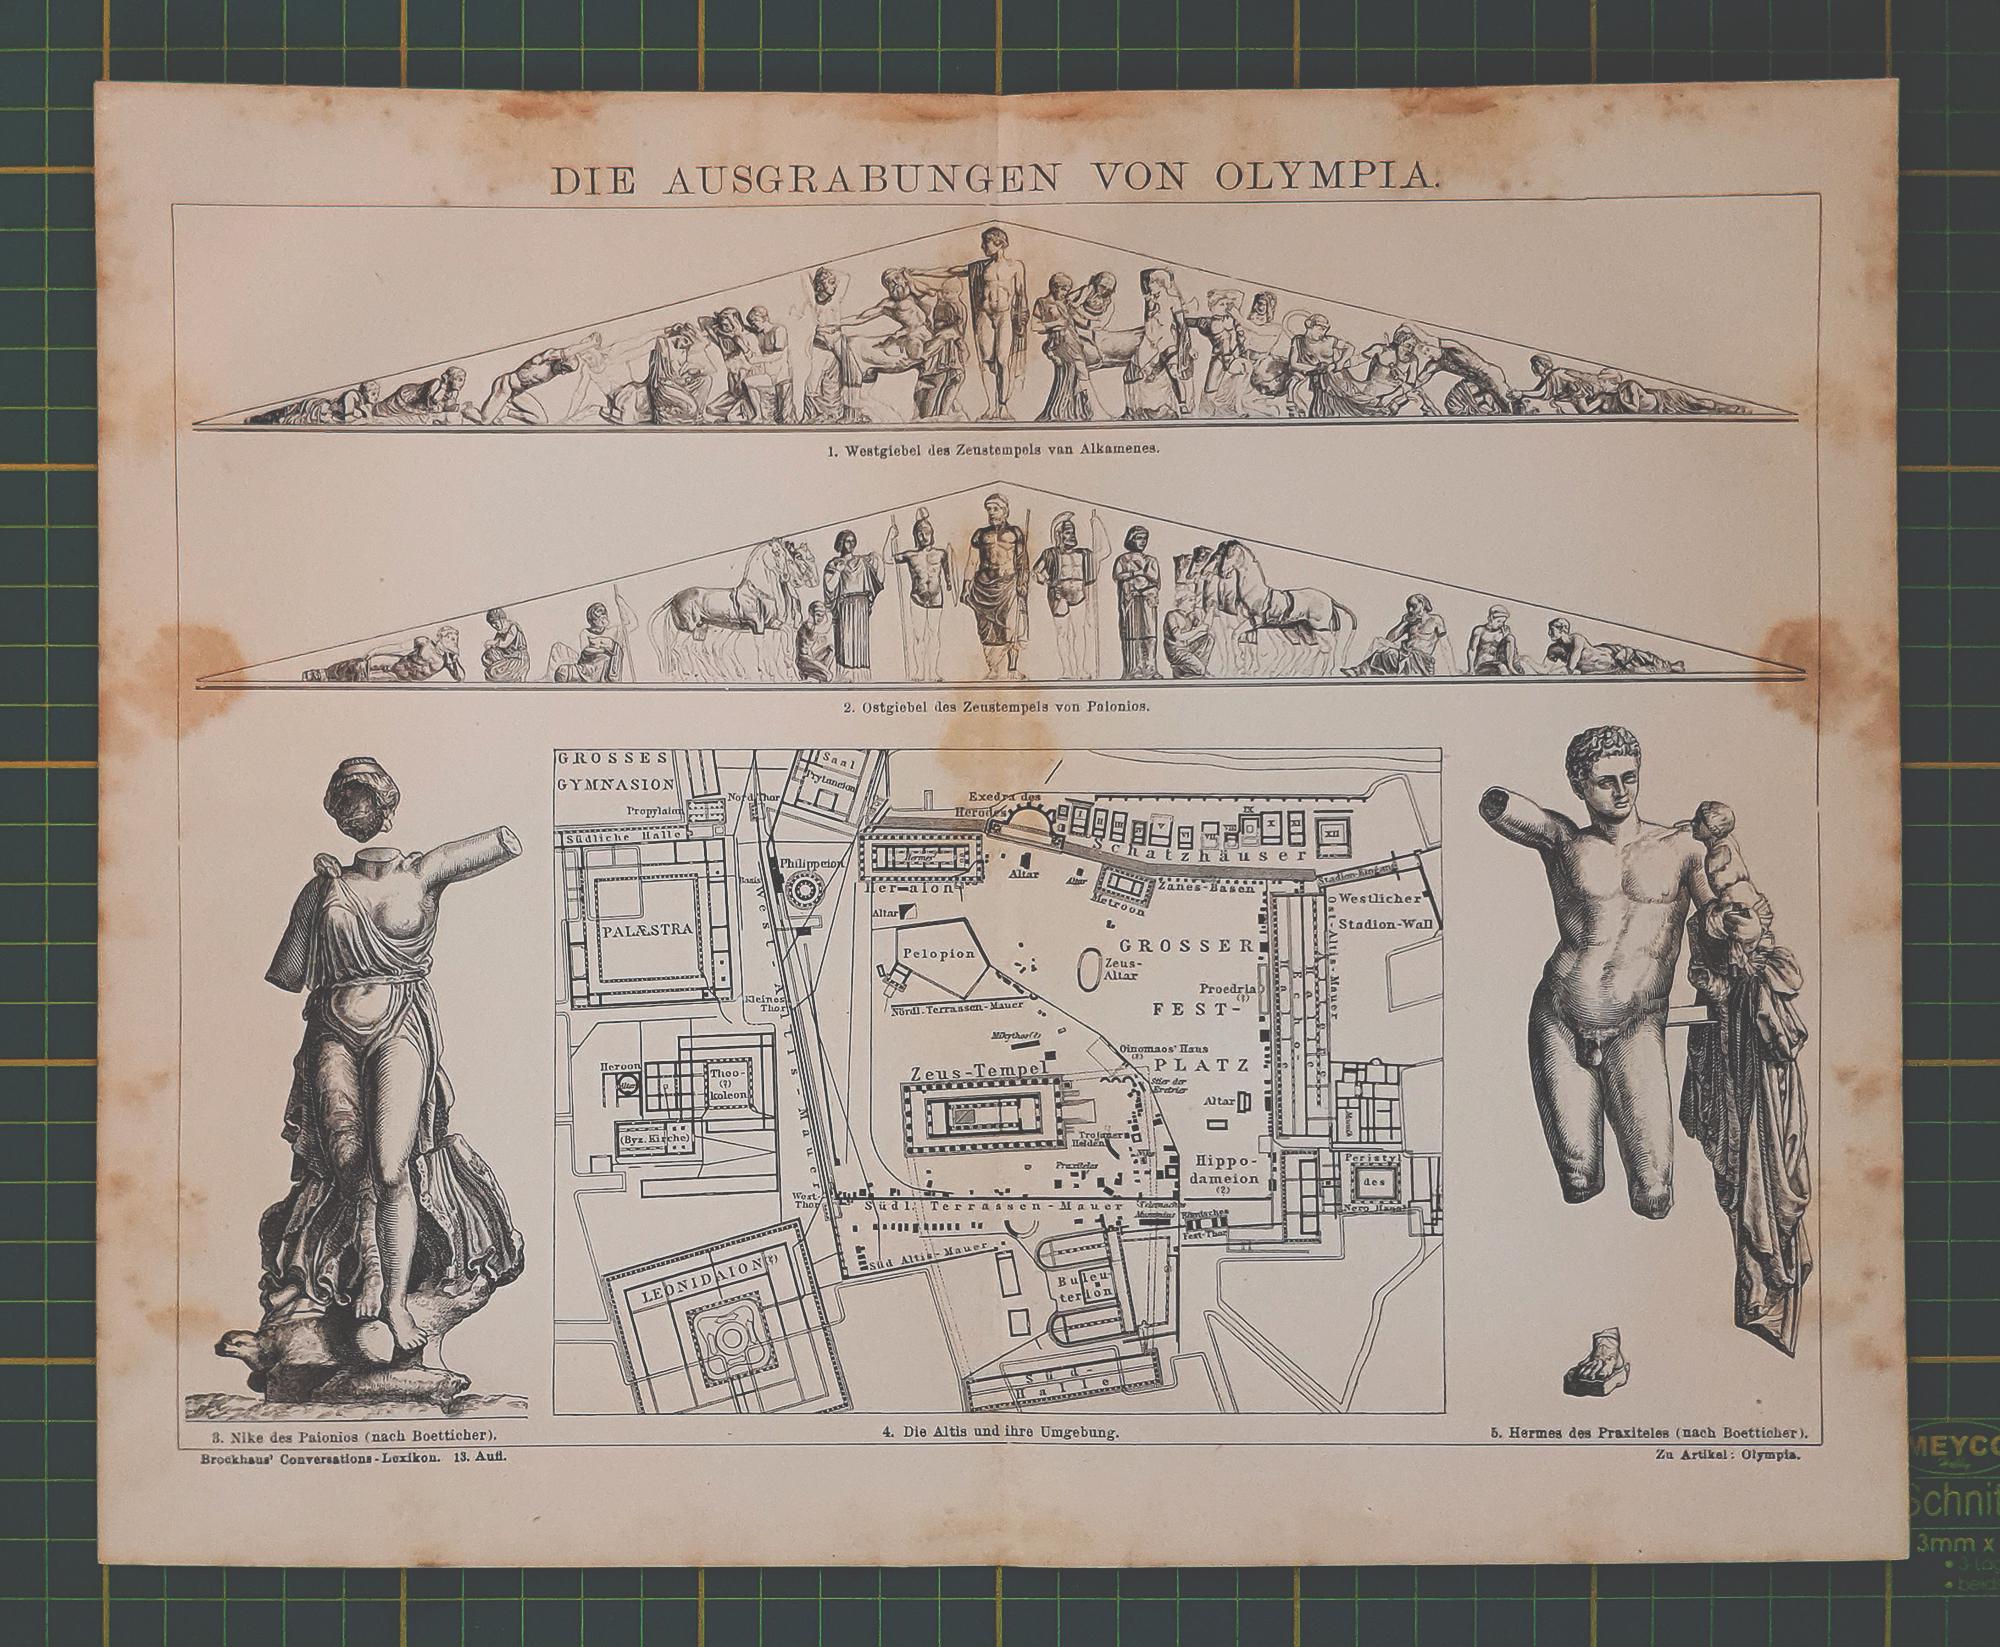 DIE AUSGRABUNGEN VON OLYMPIA.
1. Westgiebel des Zeustempels van Alkamenes.
2. Ostgiebel des Zeustempels von Paionios.
GROSSES
GYMNASION
Propylaion
Nord-Thor
Saal
Prytaneion
Südliche Halle
PALÆSTRA
Philippeion
Basis
West-Altis-Mauer
Kleines
Thor
Exedra des
Herodes
Heraion
Hermes
Altar
Altar
Altar
Metroon
Schatzhäuser
I
II
III
IV
V
VI
VII
VIII
IX
X
XI
XII
Zanes-Basen
Stadion-Eingang
Westlicher
Stadion-Wall
Ost-Altis-Mauer
Pelopion
Nördl. Terrassen-Mauer
Zeus-
Altar
GROSSER
FEST-
PLATZ
Proedria
(?)
Mikythos(?)
Oinomaos' Haus
(?)
Stier der
Eretrier
Zeus-Tempel
Altar
Trojaner
Helden
Praxiteles
Nike
Hippo-
dameion
(?)
Heroon
Altar
Theo-
(?)
koleon
(Byz. Kirche)
West-
Thor
Südl. Terrassen-Mauer
Telemachos
Mummius
Römisches
Fest-Thor
Mosaik
Peristyl
des
Nero Hauses
Süd Altis-Mauer
LEONIDAION(?)
Buleu-
terion
Süd-
Halle
3. Nike des Paionios (nach Boetticher).
4. Die Altis und ihre Umgebung.
5. Hermes des Praxiteles (nach Boetticher).
Brockhaus' Conversations-Lexikon. 13. Aufl.
Zu Artikel: Olympia.
MEYCO
Schnit
3mm x